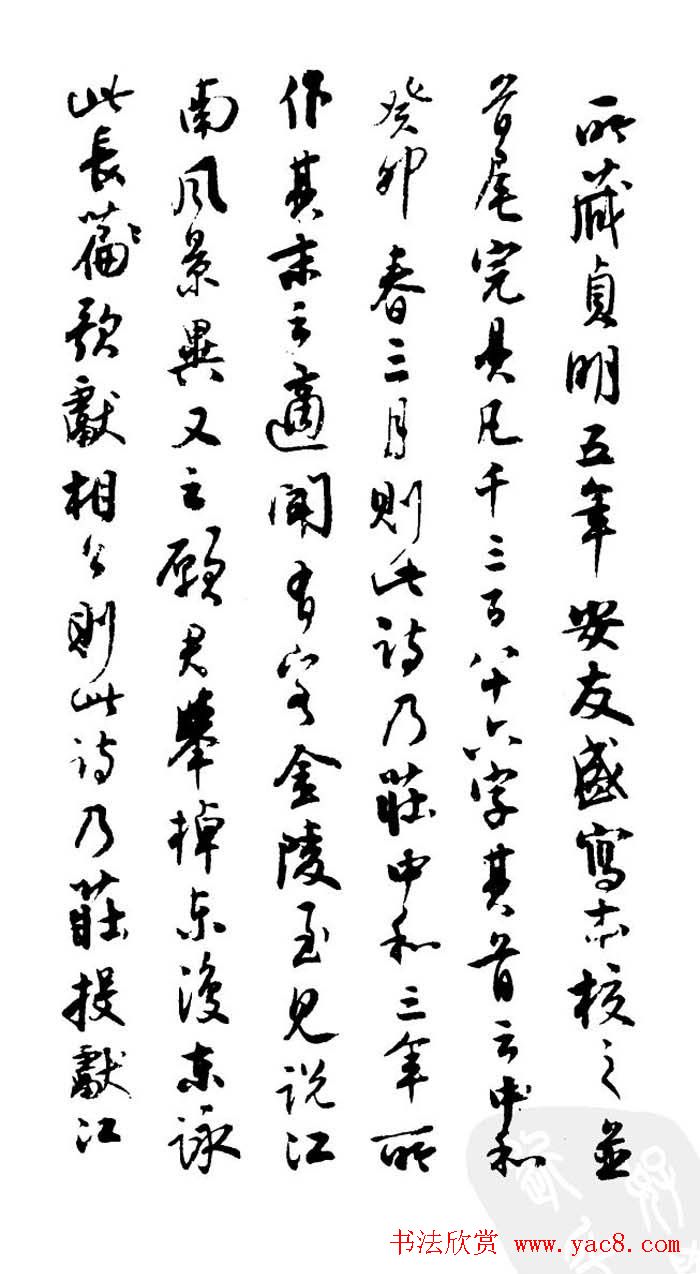 所藏貞明五年安友盛寫本校之並
首尾完具凡千三百八十六字其首云中和
癸卯春三月則此詩乃莊中和三年所
作其末云適聞有客金陵至見說江
南風景異又云願君舉棹東復東詠
此長篇歌獻相公則此詩乃莊投獻江
书法欣赏 www.yac8.com